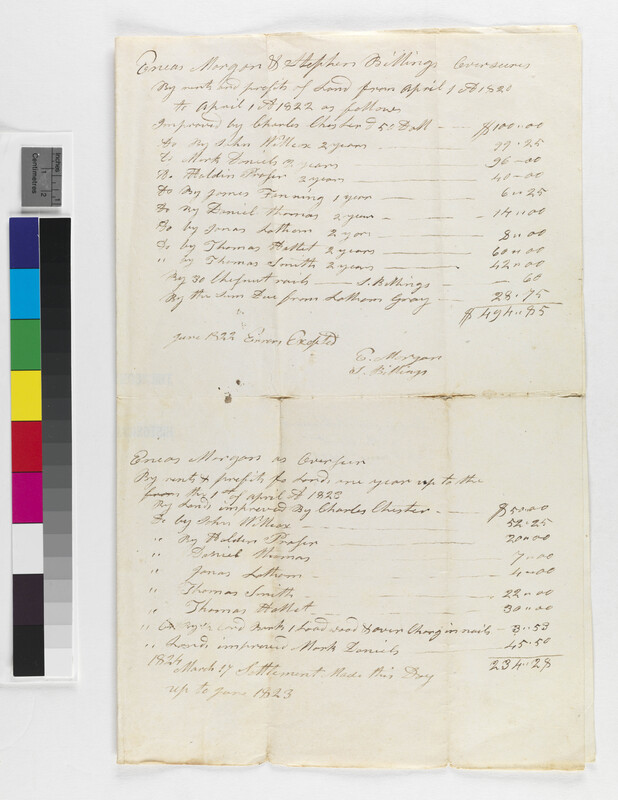 Eneas Morgan & Stephen Billings Overseers
By rents and profits of Land from April 1st 1820
to April 1st 1822 as follows
Improved by Charles Chester 50 Doll $100..00
Do By John Willcx 2 years 99.25
Do Mark Daniels 2 years 96-00
Do Holdin Prosser 2 years 40-00
Do By James Fenning 1 year 6..25
Do By Daniel Thomas 2 years 14..00
Do by Jonas Lathom 2 years 8..00
Do by Thomas Hallet 2 years 60..00
" by Thomas Smith 2 years 42..00
By 30 Chesnut rails S. Billings 60
By the Sum Due from Latham Gray 28.75
$ 494.85
June 1822 Errors Excepted
E. Morgan
S. Billings
Eneas Morgan as Overseer
By rents & profits fo Lands one year up to the
from the 1st of April 1823
By Lands improved By Charles Chester $50.00
Do by John Willcox 52.25
" By Holden Prosser 20.00
" Daniel Thomas 7..00
" Jonas Lathom 4..00
" Thomas Smith 22..00
" Thomas Hallet 30..00
" 1 Load wood & over Charg in nails 3..53
" Lands improved Mark Daniels 45.50
234.28
1824
March 17 Settlement Made this Day
up to June 1823
Centimetres
Inches